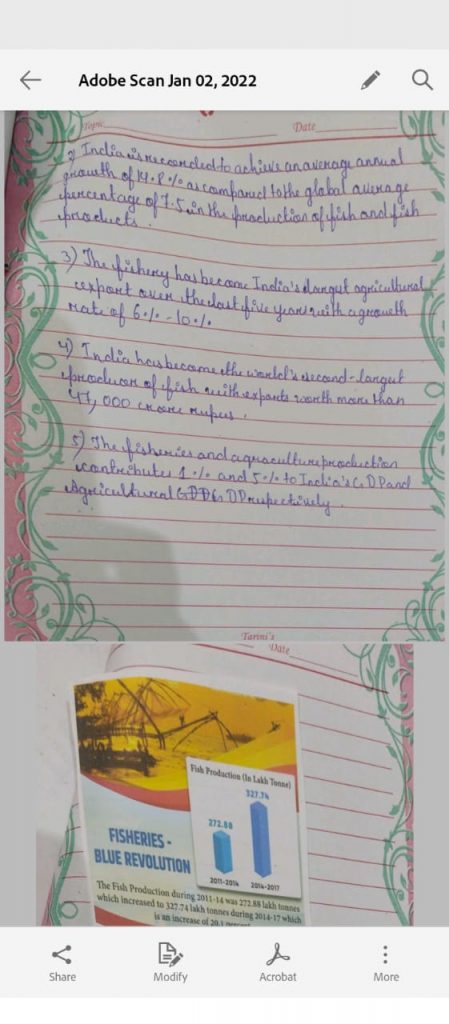 Adobe Scan Jan 02, 2022
Topic Date
2) India is recorded to achieve an average annual
growth of 14.8% as compared to the global average
percentage of 7.5 in the production of fish and fish
products.
3) The fishery has become India's largest agricultural
export over the last five years with a growth
rate of 6% - 10%
4) India has become the world's second-largest
producer of fish with exports worth more than
47,000 crore rupees.
5) The fisheries and aquaculture production
contributes 1% and 5% to India's GDP and
Agricultural GDP respectively.
Tarini's
Date
Fish Production (In Lakh Tonne)
327.74
272.88
2011-2014 2014-2017
FISHERIES -
BLUE REVOLUTION
The Fish Production during 2011-14 was 272.88 lakh tonnes
which increased to 327.74 lakh tonnes during 2014-17 which
is an increase of 20.1 percent
Share Modify Acrobat More